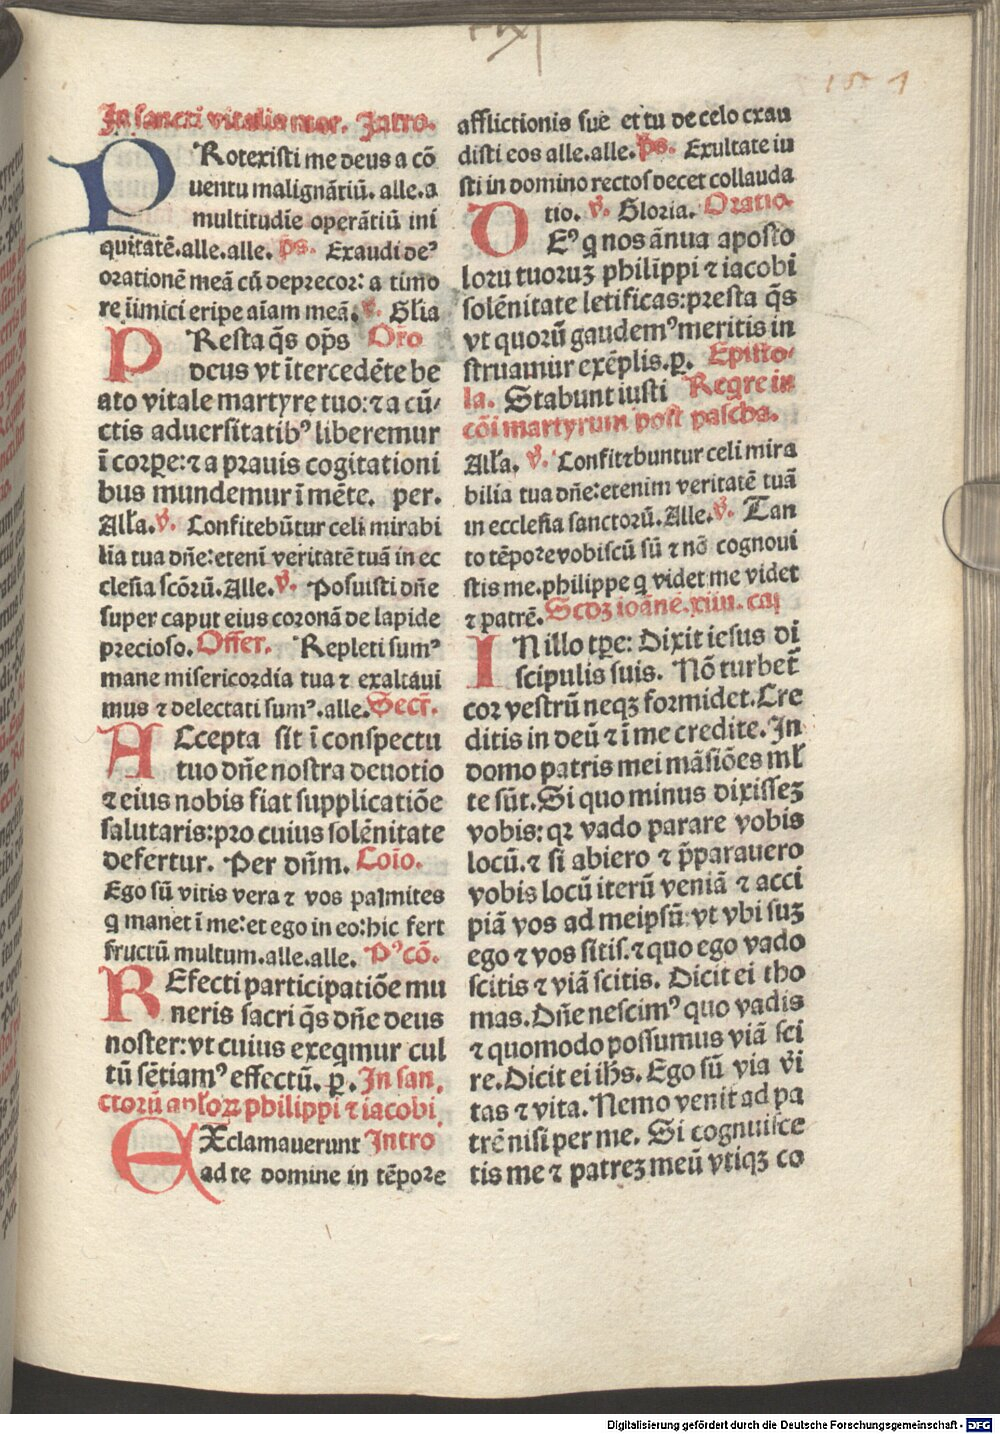 151
In sancti vitalis mar. Intro.
PRotexisti me deus a cō
uentu malignātiū. alle. a
multitudīe operātiū ini
quitatē.alle.alle. ps. Exaudi deꝰ
orationē meā cū deprecor: a timo
re īimici eripe aīam meā. ℣. Glīa
PResta q̄s op̄s Or̄o
deus vt ītercedēte be
ato vitale martyre tuo: ⁊ a cū-
ctis aduersitatibꝰ liberemur
ī corꝑe: ⁊ a prauis cogitationi
bus mundemur ī mēte. per.
All'a. ℣. Confitebūtur celi mirabi
lia tua dn̄e: etenī veritatē tuā in ec
clesia scōrū. Alle. ℣. Posuisti dn̄e
super caput eius coronā de lapide
precioso. Offer. Repleti sumꝰ
mane misericordia tua ⁊ exaltaui
mus ⁊ delectati sumꝰ. alle. Secr̄.
ACcepta sit ī conspectu
tuo dn̄e nostra deuotio
⁊ eius nobis fiat supplicatiōe
salutaris: pro cuius solēnitate
defertur. Per dn̄m. Coīo.
Ego sū vitis vera ⁊ vos palmites
q manet ī me: et ego in eo: hic fert
fructū multum. alle. alle. Pꝰcō.
REfecti participatiōe mu
neris sacri q̄s dn̄e deus
noster: vt cuius exeqmur cul
tū sētiamꝰ effectū. ꝑ. In san
ctorū apl'oꝝ philippi ⁊ iacobi
EXclamauerunt Intro
ad te domine in tēpore
afflictionis sue et tu de celo exau
disti eos alle. alle. ps. Exultate iu
sti in domino rectos decet collauda
tio. ℣. Gloria. Oratio.
DEꝰ q nos ānua aposto
loru tuoruꝫ philippi ⁊ iacobi
solēnitate letificas: presta q̄s
vt quorū gaudemꝰ meritis in
struamur exēplis. ꝑ. Episto-
la. Stabunt iusti Regre in
cōi martyrum post pascha.
All'a. ℣. Confitebuntur celi mira
bilia tua dn̄e: etenim veritatē tuā
in ecclesia sanctorū. Alle. ℣. Tan
to tēpore vobiscū sū ⁊ nō cognoui
stis me. philippe q videt me videt
⁊ patrē. Scdꝫ ioānē. xiiii. ca
IN illo tꝑe: Dixit iesus di
scipulis suis. Nō turbet̄
cor vestrū neqꝫ formidet. Cre
ditis in deū ⁊ ī me credite. In
domo patris mei māsiōes ml'
te sūt. Si quo minus dixisseꝫ
vobis: qꝛ vado parare vobis
locū. ⁊ si abiero ⁊ p̄parauero
vobis locū iterū veniā ⁊ acci
piā vos ad meipsū: vt vbi suꝫ
ego ⁊ vos sitis. ⁊ quo ego vado
scitis ⁊ viā scitis. Dicit ei tho
mas. Dn̄e nescimꝰ quo vadis
⁊ quomodo possumus viā sci
re. Dicit ei ih̄s. Ego sū via v̄i
tas ⁊ vita. Nemo venit ad pa
trē nisi per me. Si cognuisce
tis me ⁊ patreꝫ meū vtiqꝫ co
Digitalisierung gefördert durch die Deutsche Forschungsgemeinschaft - DFG